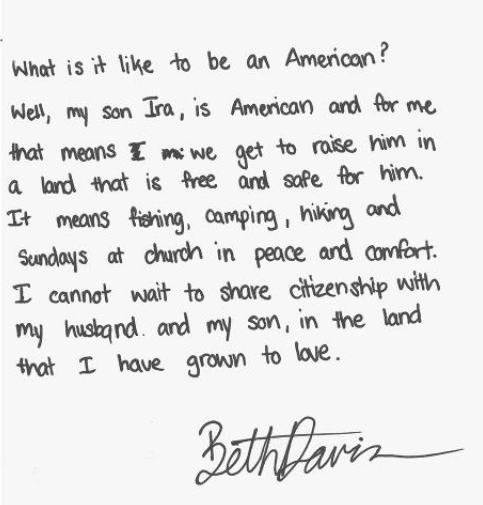 What is it like to be an American?
Well, my son Ira, is American and for me
that means I we get to raise him in
a land that is free and safe for him.
It means fishing, camping, hiking and
Sundays at church in peace and comfort.
I cannot wait to share citizenship with
my husband. and my son, in the land
that I have grown to love.
Beth Davis